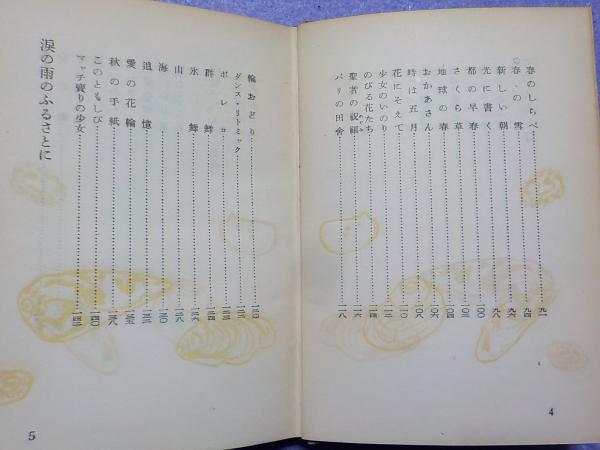 春のしらべ……九一
春の雪……九四
新しい朝……九六
光に書く……九八
都の早春……一〇〇
さくら草……一〇三
地球の春……一〇四
おかあさん……一〇六
時は五月……一〇八
花にそえて……一一〇
少女のいのり……一一二
のびる花たち……一一四
聖者の祝福……一一六
パリの田舎……一一八
4
輪おどり……一二〇
ダンス・リトミック……一二二
ボレロ……一二三
群舞……一二四
氷舞……一二六
山……一二八
海
追憶……一三三
愛の花輪……一三五
秋の手紙……一三八
このともしび……一四〇
マッチ賣りの少女……一四二
涙の雨のふるさとに
5